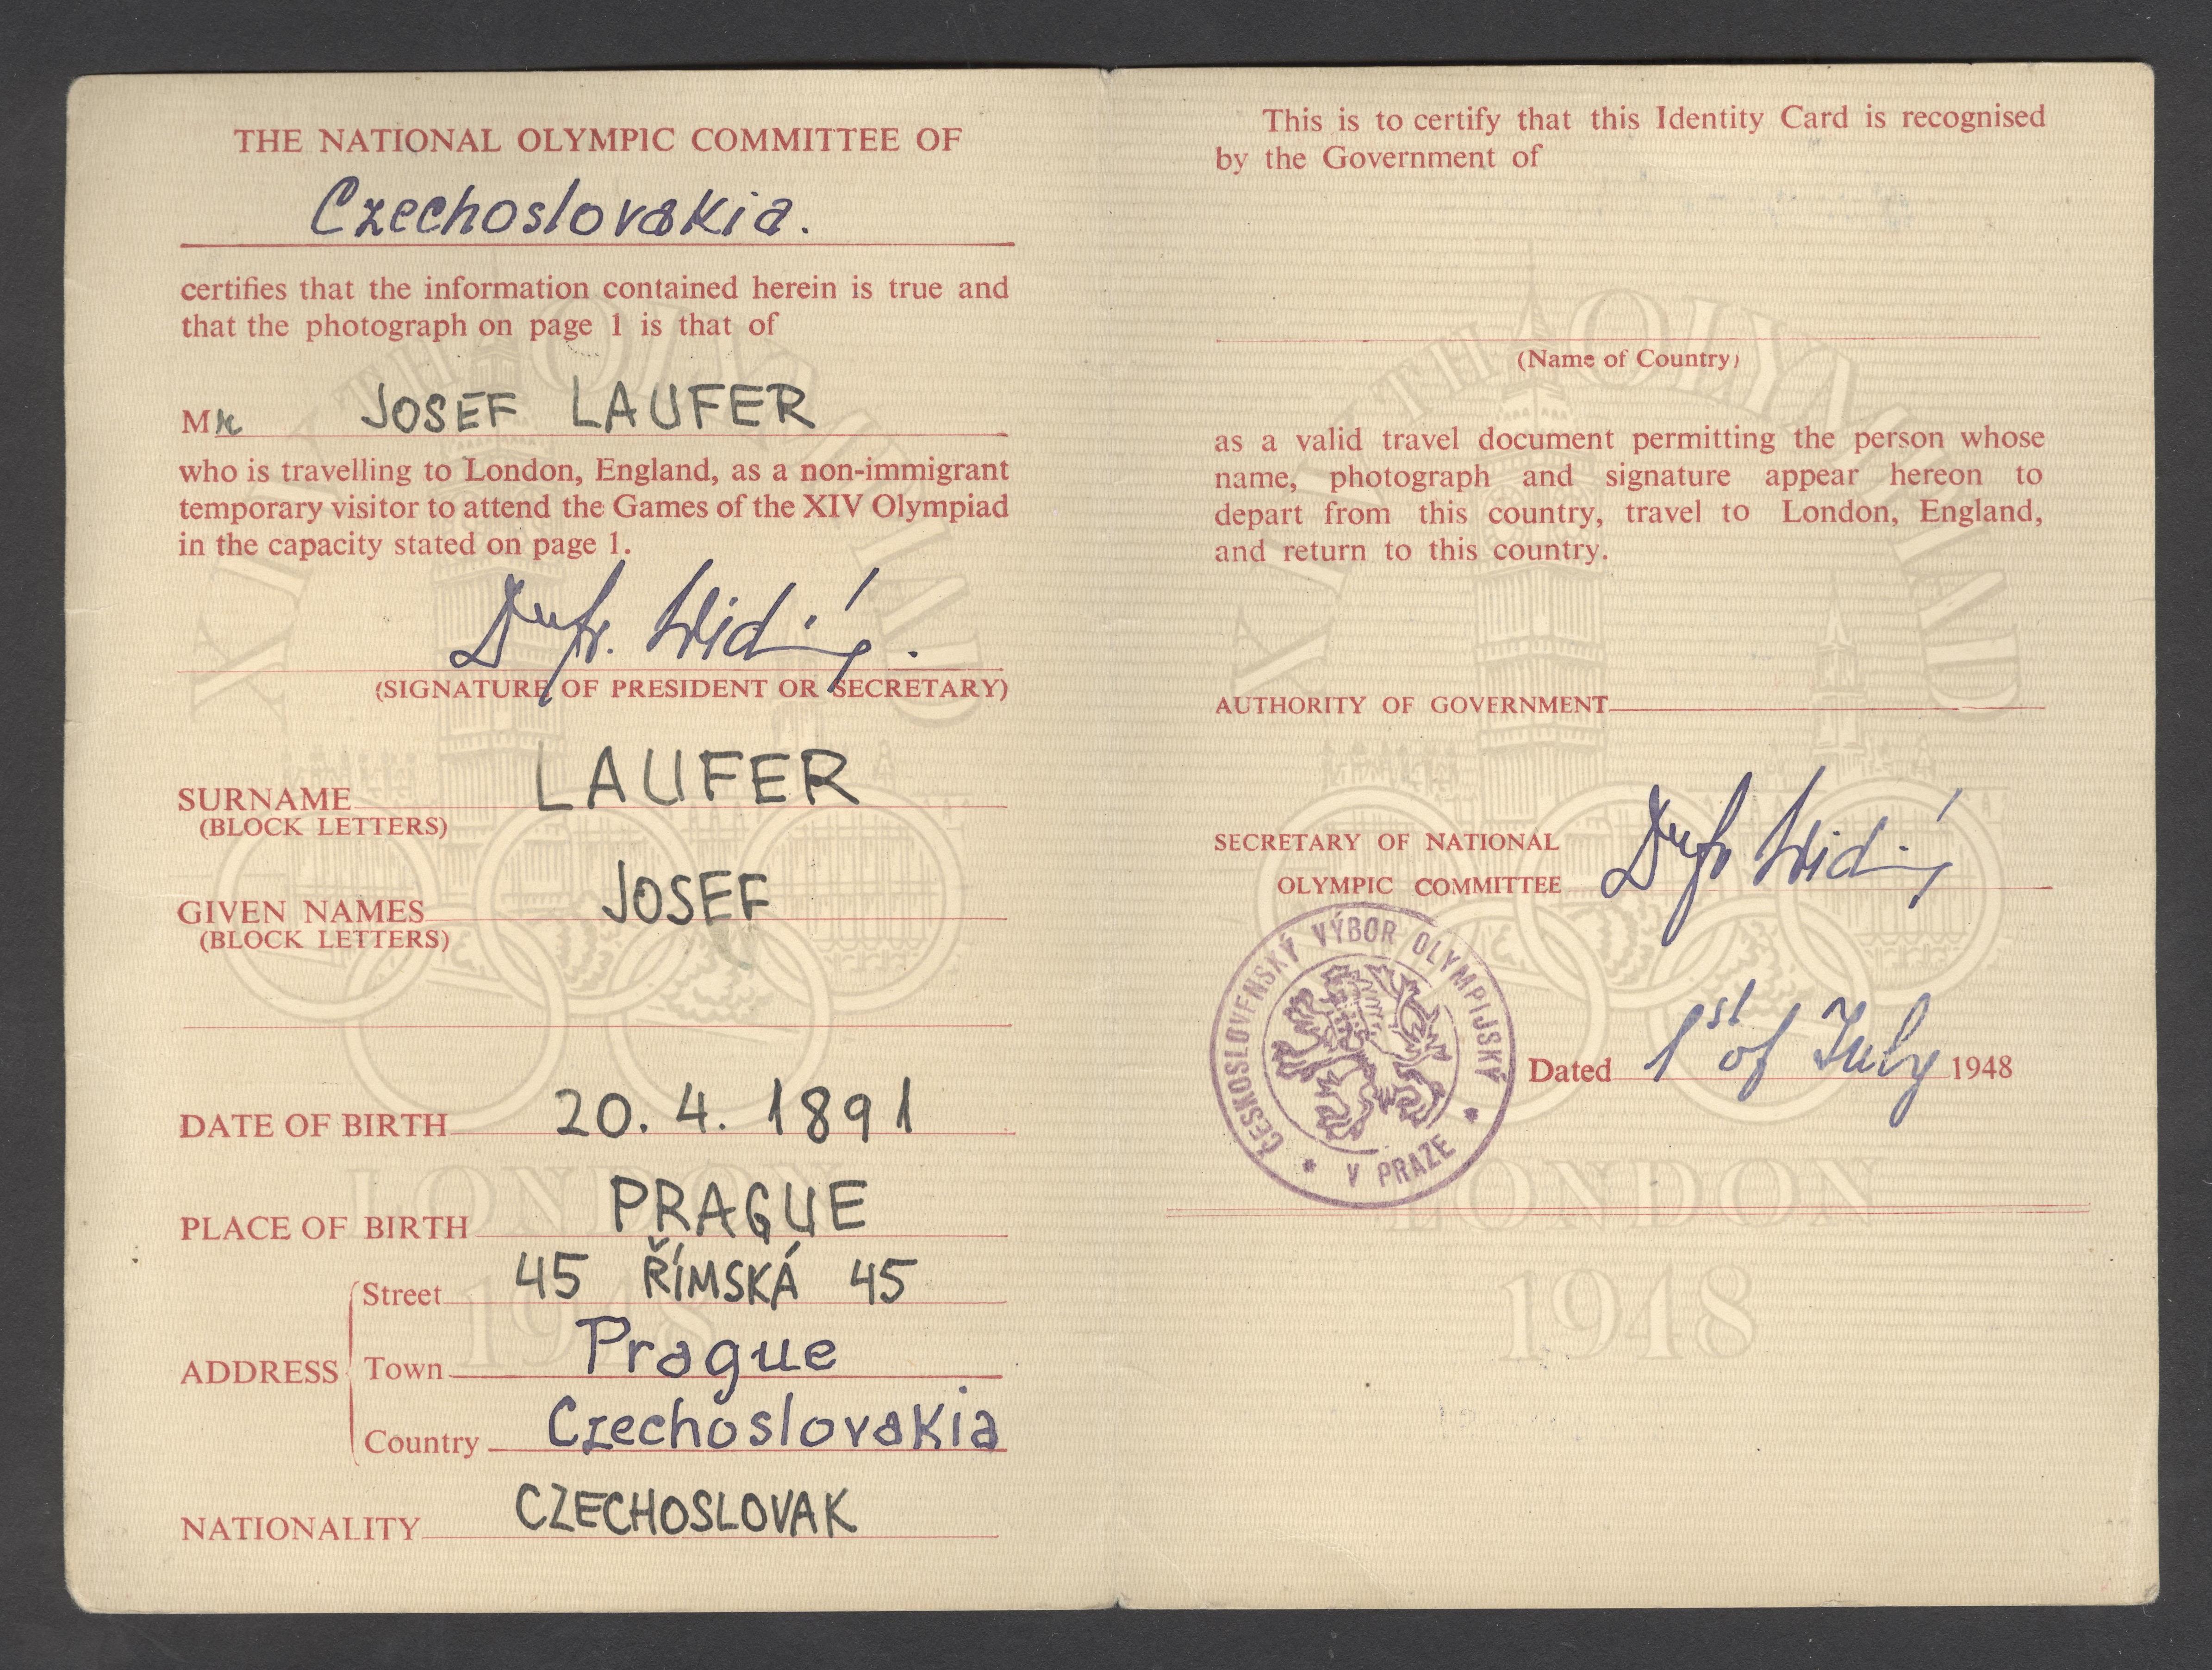 THE NATIONAL OLYMPIC COMMITTEE OF
Czechoslovakia.
certifies that the information contained herein is true and
that the photograph on page 1 is that of
Mr JOSEF LAUFER
who is travelling to London, England, as a non-immigrant
temporary visitor to attend the Games of the XIV Olympiad
in the capacity stated on page 1.
(SIGNATURE OF PRESIDENT OR SECRETARY)
SURNAME LAUFER
(BLOCK LETTERS)
GIVEN NAMES JOSEF
(BLOCK LETTERS)
DATE OF BIRTH 20. 4. 1891
PLACE OF BIRTH PRAGUE
ADDRESS
Street 45 ŘÍMSKÁ 45
Town Prague
Country Czechoslovakia
NATIONALITY CZECHOSLOVAK
XIVTH OLYMPIAD
LONDON
1948
This is to certify that this Identity Card is recognised
by the Government of
(Name of Country)
as a valid travel document permitting the person whose
name, photograph and signature appear hereon to
depart from this country, travel to London, England,
and return to this country.
AUTHORITY OF GOVERNMENT
SECRETARY OF NATIONAL
OLYMPIC COMMITTEE
ČESKOSLOVENSKÝ VÝBOR OLYMPIJSKÝ
* V PRAZE *
Dated 1st of July 1948
XIVTH OLYMPIAD
LONDON
1948